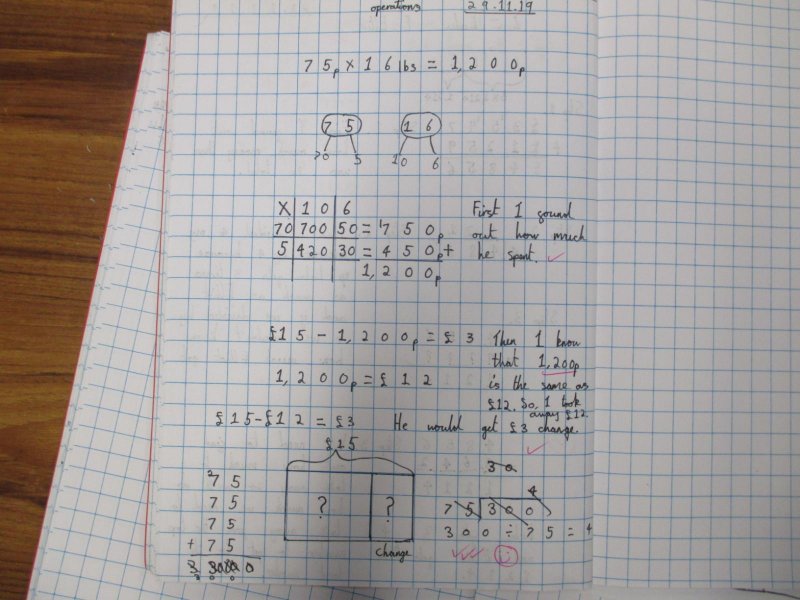 operations 29.11.19
75p × 16 lbs = 1,200p
75 16
70 5 10 6
X 10 6
70 700 50 = 750p
5 420 30 = 450p +
1,200p
First I found
out how much
he spent. ✓
£15 - 1,200p = £3
1,200p = £12
£15-£12 = £3
Then I know
that 1,200p
is the same as
£12. So, I took
away £12.
He would get £3 change.
£15
? ?
change
75
75
75
+ 75
30
4
75 300
300 ÷ 75 = 4